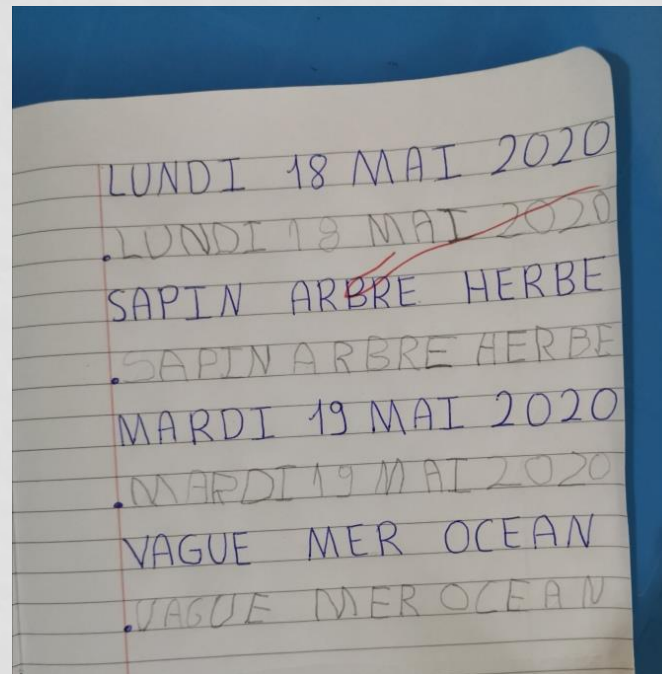 LUNDI 18 MAI 2020
.LUNDI 18 MAI 2020
SAPIN ARBRE HERBE
.SAPIN ARBRE HERBE
MARDI 19 MAI 2020
.MARDI 19 MAI 2020
VAGUE MER OCEAN
.VAGUE MER OCEAN